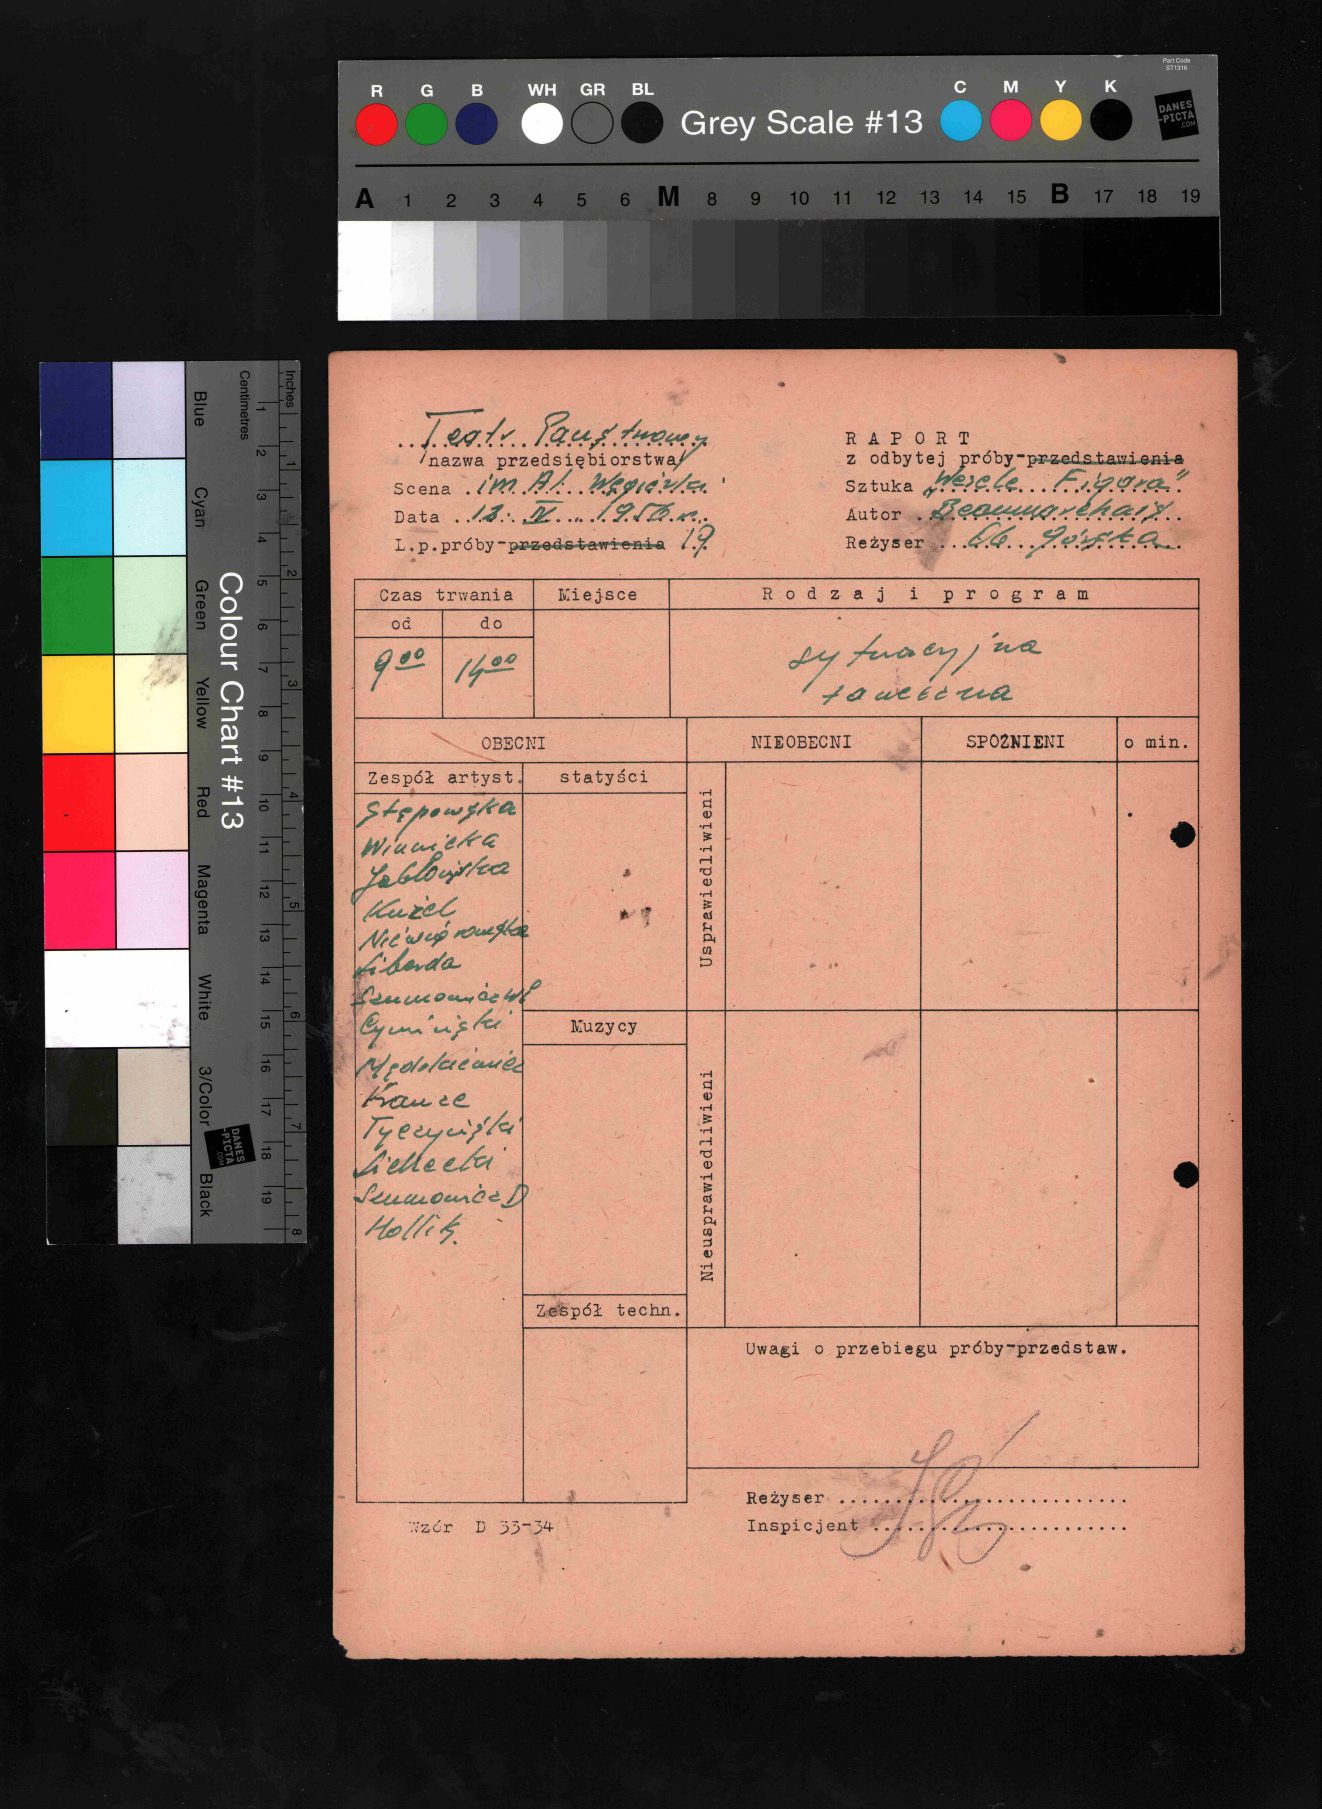 Part Code
ST1316
R G B WH GR BL Grey Scale #13 C M Y K
DANES
-PICTA
.COM
A 1 2 3 4 5 6 M 8 9 10 11 12 13 14 15 B 17 18 19
Colour Chart #13
Blue Cyan Green Yellow Red Magenta White 3/Color Black
Centimetres
1 2 3 4 5 6 7 8 9 10 11 12 13 14 15 16 17 18 19
Inches
1 2 3 4 5 6 7 8
DANES
-PICTA
.COM
Teatr Państwowy
nazwa przedsiębiorstwa
Scena im Al. Węgierki
Data 12. IV. 1956 r.
L.p.próby-przedstawienia 19
RAPORT
z odbytej próby-przedstawienia
Sztuka „Wesele Figara"
Autor Beaumarchais
Reżyser Górska
Czas trwania Miejsce Rodzaj i program
od do
9⁰⁰ 14⁰⁰
sytuacyjna
taneczna
OBECNI NIEOBECNI SPÓŹNIENI o min.
Zespół artyst. statyści
Usprawiedliwieni
Stępowska
Winnicka
Jabłońska
Kuźel
Niewiarowska
Liberda
Szumowicz Wł
Cymiński
Muzycy
Nieusprawiedliwieni
Krauze
Tyczyński
Sichecki
Szumowicz D
Hollik.
Zespół techn.
Uwagi o przebiegu próby-przedstaw.
Reżyser
Inspicjent
Wzór D 33-34